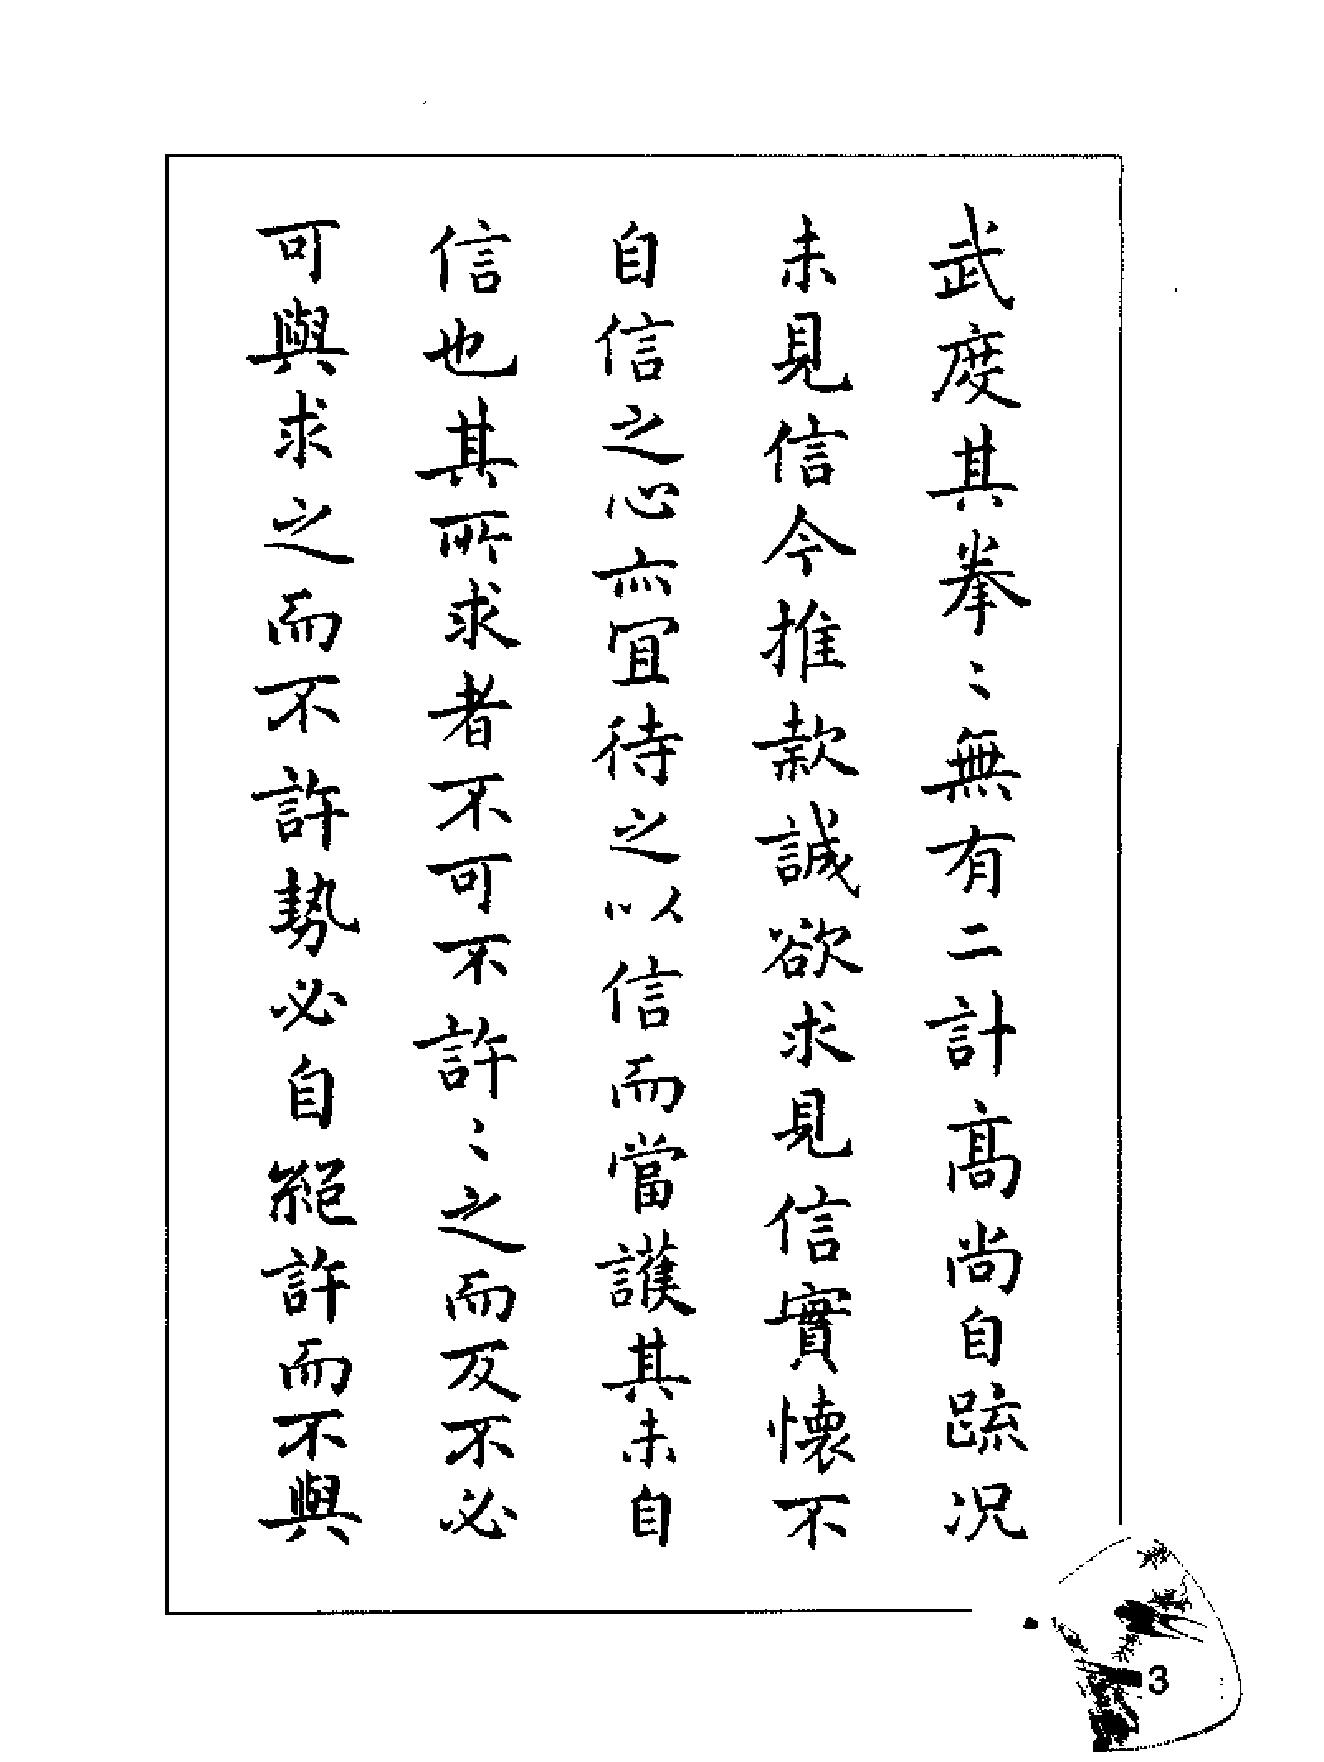 武度其拳〻無有二計髙尚自疏況
未見信今推款誠欲求見信實懷不
自信之心亦冝待之以信而當護其未自
信也其所求者不可不許〻之而反不必
可與求之而不許勢必自絕許而不與
3